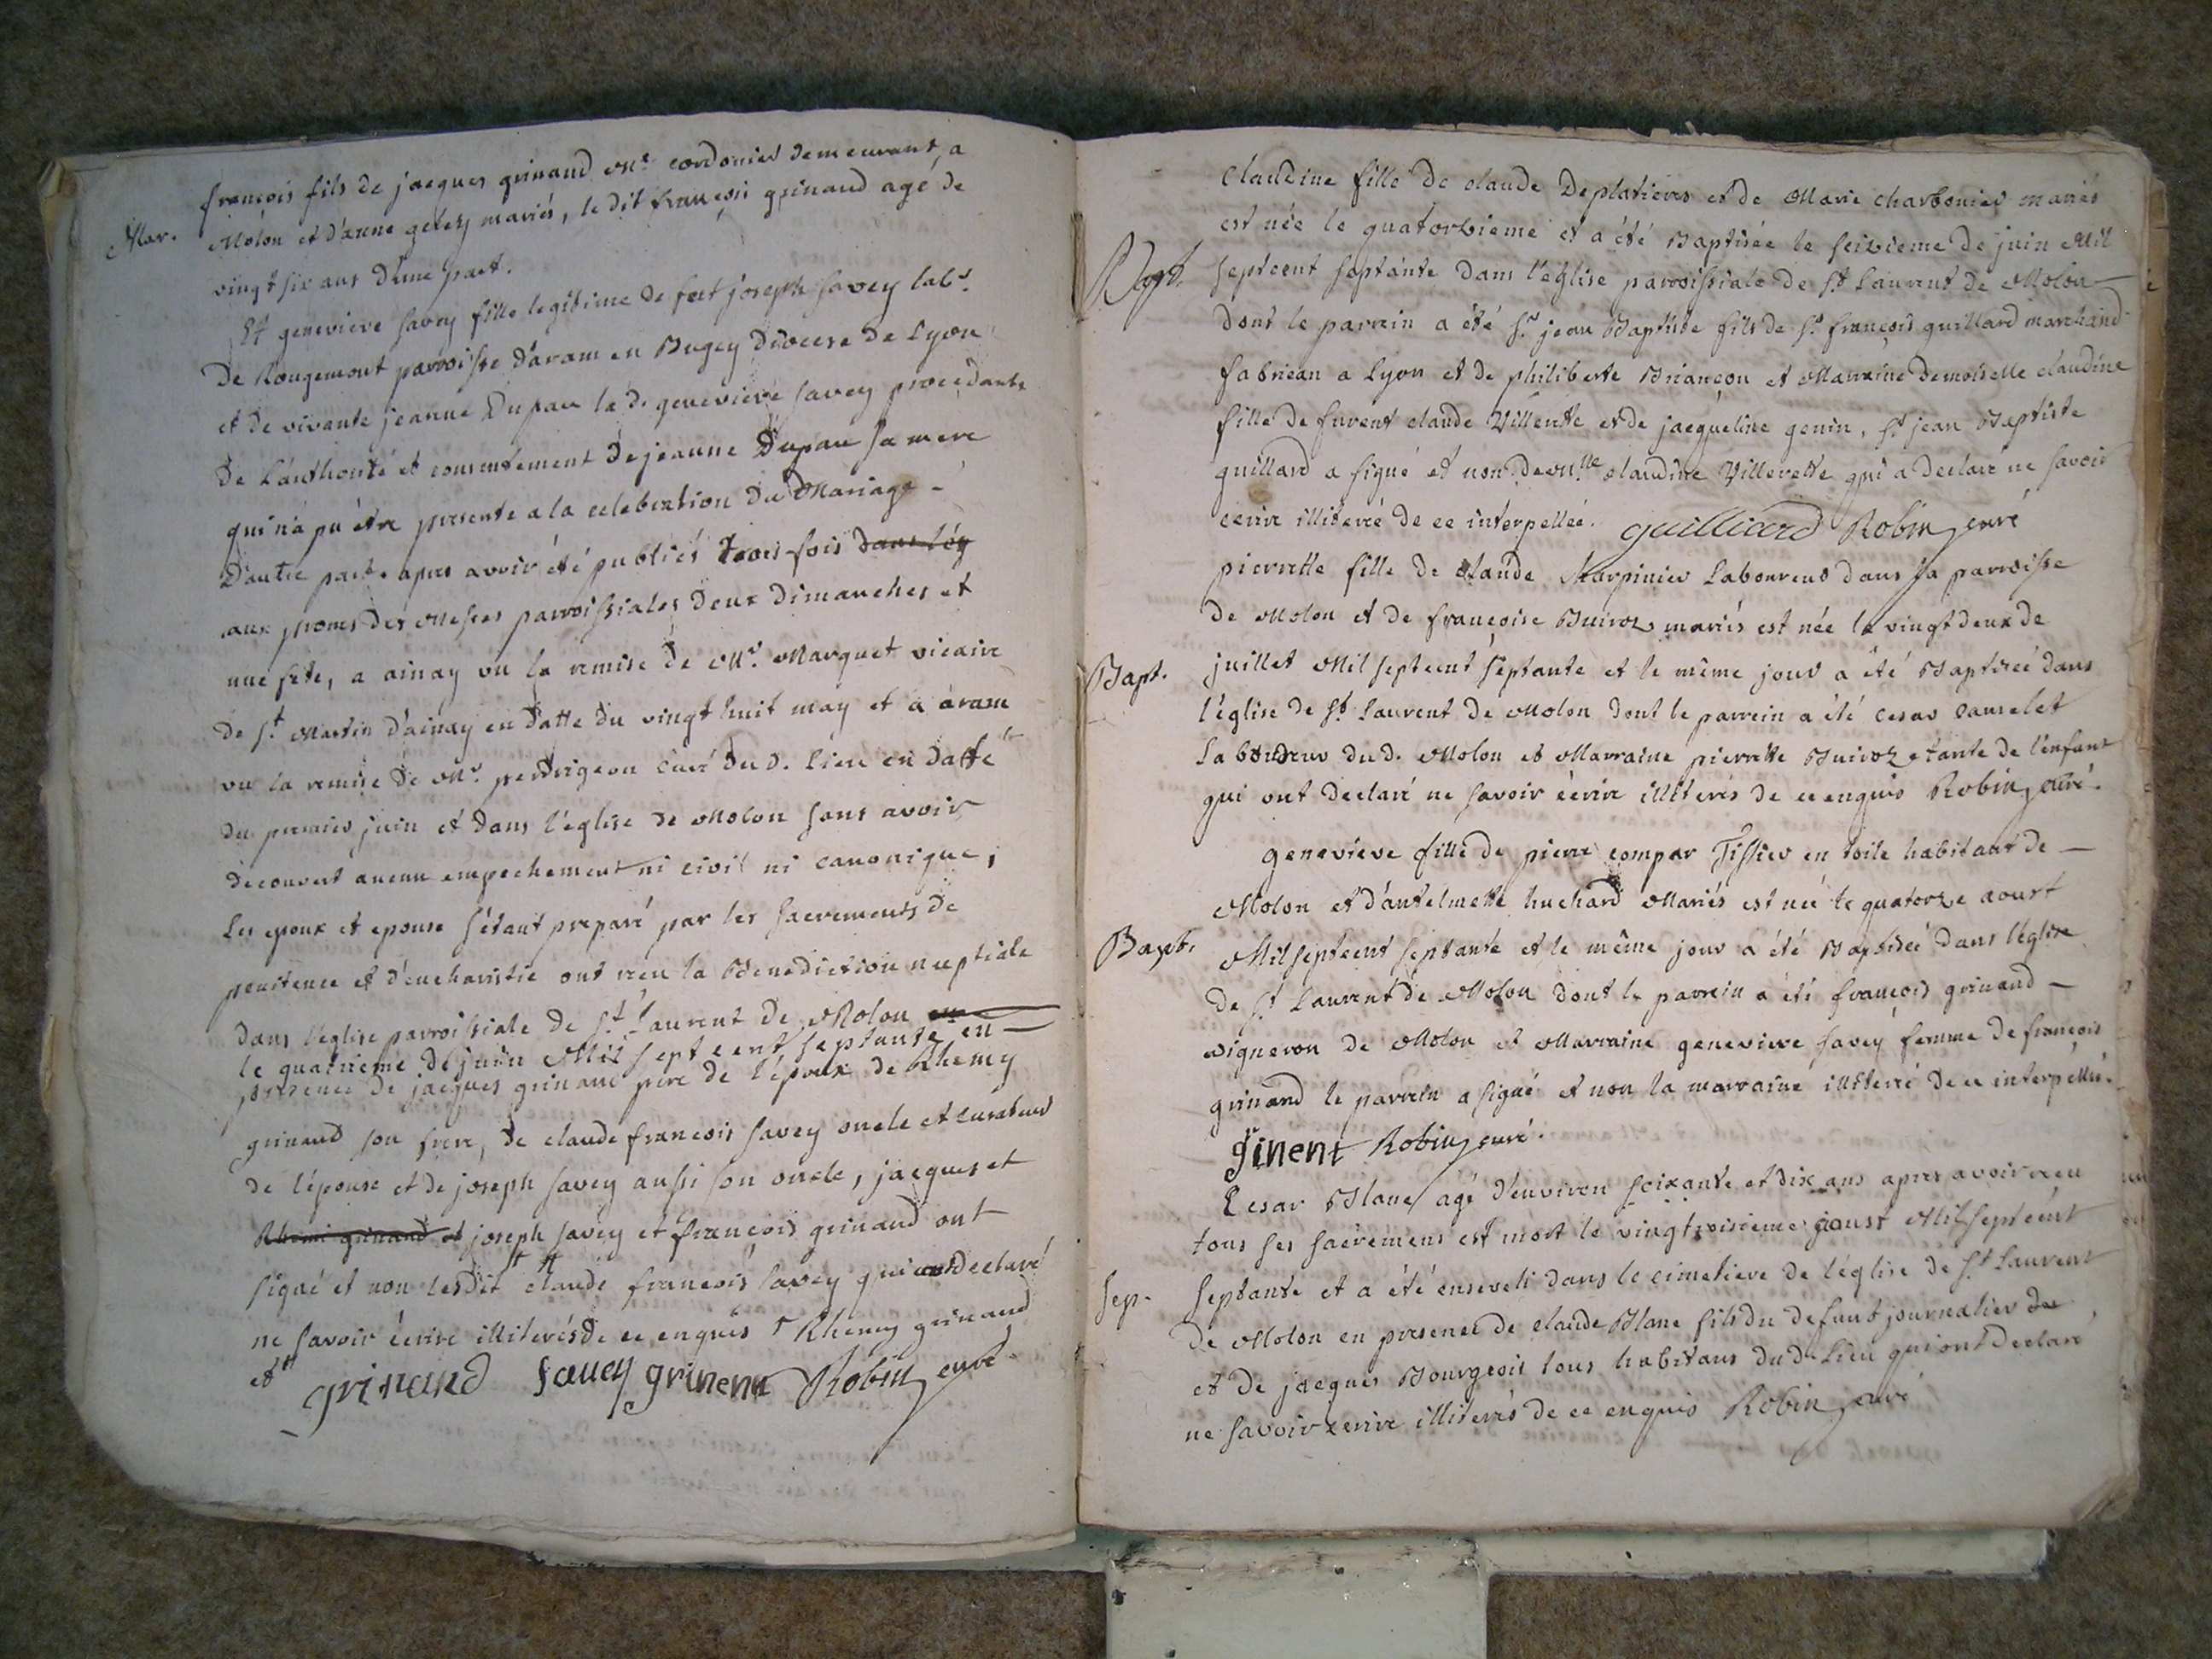 françois fils de jacques grinand M.e cordonier demeurant, a
Mar.
Molon et d'anne geley mariés, le dit françois grinand agé de
vingt six ans d'une part.
Et genevieve savey fille legitime de feut joseph savey lab.r
de Rougemont parroisse d'aram en Bugey diocese de Lyon
et de vivante jeanne Dupau la d. genevieve savey procedante
de L'authorité et consentement de jeanne Dupau sa mere
qui n'a pu être presente a la celebration du Mariage -
d'autre part. apres avoir été publiés trois fois dans l'ég
aux prones des Messes parroissiales deux dimanches et
une fete, a ainay vu la remise de M.r Marquet vicaire
de S.t Martin d'ainay en datte du vingt huit may et a aram
vu la remise de M.r perdrigeon Curé dud. lieu en datte
du premier juin et dans l'eglise de Molon sans avoir
decouvert aucun empechement ni civil ni canonique,
Les epoux et epouse s'étant preparé par les sacrements de
penitence et d'eucharistie ont reçu la Benediction nuptiale
dans l'eglise parroissiale de S.t Laurent de Molon en
le quatrieme de juin Mil sept cent septante en
presence de jacques grinand pere de l'époux de Rhemy
grinand son frere, de claude françois savey oncle et curateur
de l'épouse et de joseph savey aussi son oncle, jacques et
Rhemi grinand et joseph savey et françois grinand ont
signé et non lesdit claude françois savey qui ont declaré
ne savoir écrire illiterés de ce enquis † Rhemy grinand
et
grinand savey grinent Robin curé
Claudine fille de claude Deplatieres et de Marie charbonier mariés
est née le quatorzieme et a été Baptisée le seizieme de juin Mil
Bapt.
septcent septante dans l'église parroissiale de S.t Laurent de Molon
dont le parrein a été S.r jean Baptiste fils de S.r françois guillard marchand
fabrican a Lyon et de philiberte Briançon et Marraine demoiselle claudine
fille de furent claude Villerette et de jacqueline genin, S.r jean Baptiste
guillard a signé et non Demlle claudine Villerette qui a declaré ne savoir
ecrire illiterée de ce interpellée. guilliard Robin curé
pierrette fille de claude Marpinier Laboureur dans la parroisse
de Molon et de françoise Buiroz mariés est née le vingt deux de
Bapt.
juillet Mil septcent septante et le même jour a été Baptisée dans
l'église de S.t Laurent de Molon dont le parrein a été cesar canselet
Laboureur dud. Molon et Marraine pierrette Buiroz tante de l'enfant
qui ont declaré ne savoir écrire illiterés de ce enquis Robin curé.
genevieve fille de pierre compar Tissier en toile habitant de
Molon et d'antelmette huchard Mariés est née le quatorze aoust
Bapt.
Mil septcent septante et le même jour a été Baptisée dans l'église
de S.t Laurent de Molon dont le parrein a été françois grinand
vigneron de Molon et Marraine genevieve savey femme de françois
grinand le parrein a signé et non la marraine illiterée de ce interpellée.
grinent Robin curé.
Cesar Blanc agé d'environ soixante et dix ans apres avoir reçu
tous ses sacremens est mort le vingtroisieme aoust Mil septcent
Sep.
septante et a été enseveli dans le cimetiere de l'église de S.t Laurent
de Molon en presence de claude Blanc fils du defunt journalier du
et de jacques Bourgeois tous habitans dud. lieu qui ont declaré
ne savoir écrire illiterés de ce enquis Robin curé